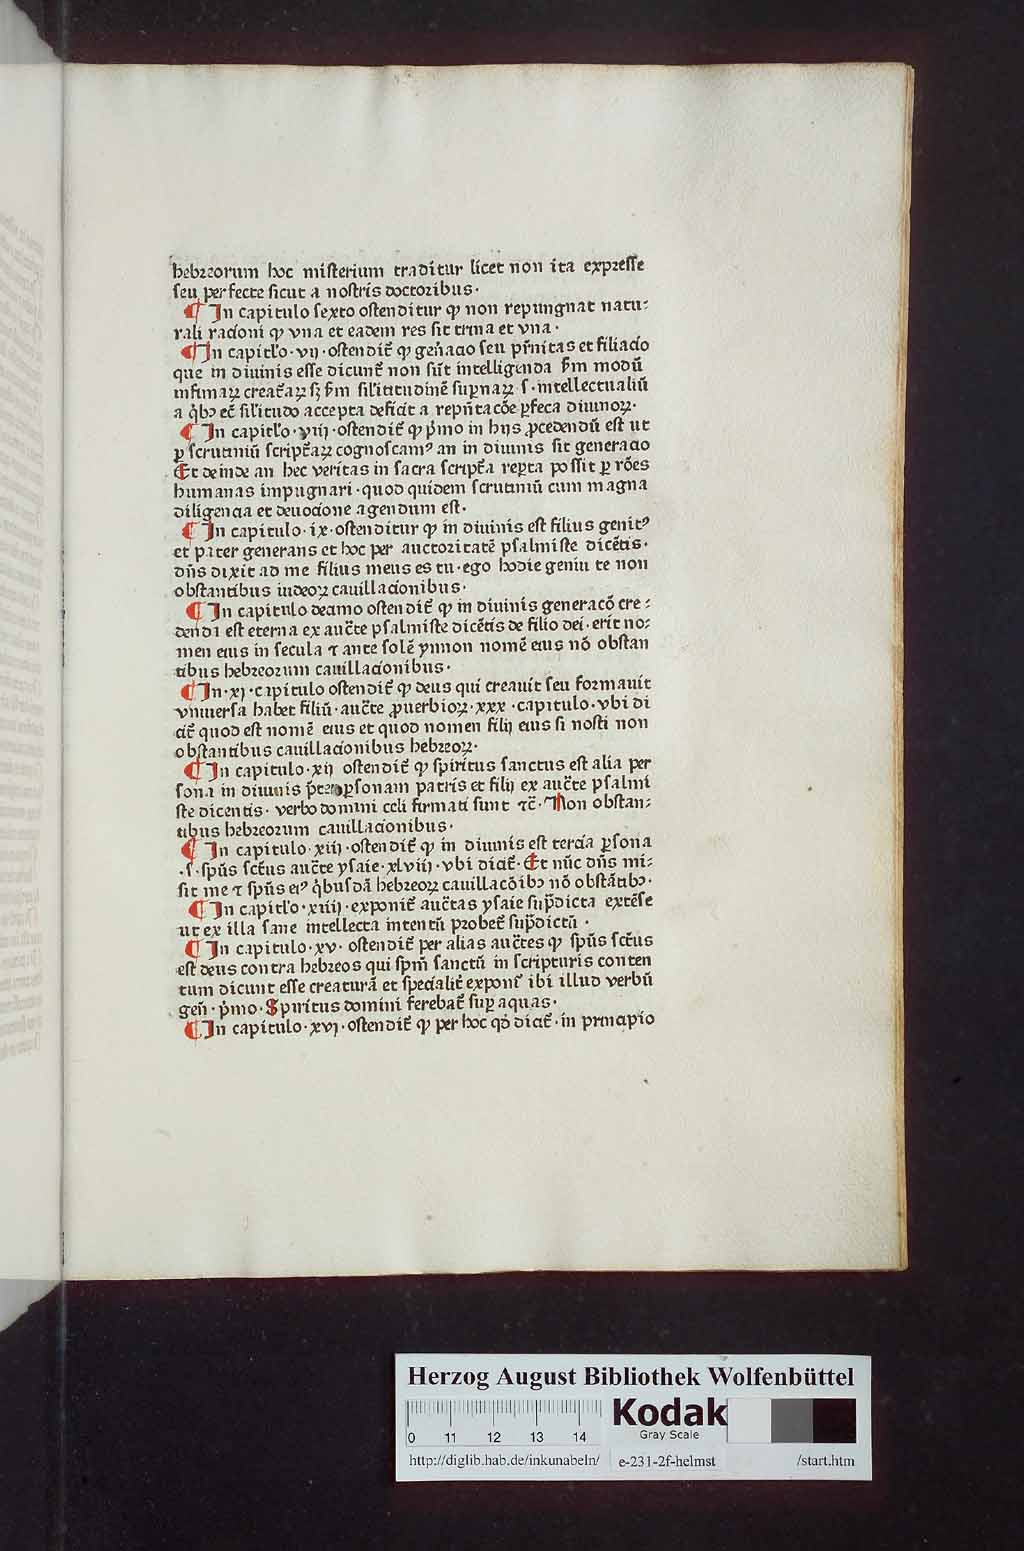 hebreorum hoc misterium traditur licet non ita expresse
seu perfecte sicut a nostris doctoribus·
¶ In capitulo sexto ostenditur ꝙ non repungnat natu⸗
rali racioni ꝙ vna et eadem res sit trina et vna·
¶ In capitl’o·vij·ostendit᷑ ꝙ gen᷑acio seu pr̄nitas et filiacio
que in diuinis esse dicunt᷑ non sūt intelligenda ẜm modū
infimaꝝ creat᷑aꝝ sꝫ ẜm sil’itudinē suꝑnaꝝ·s·intellectualiū
a qͥbꝫ ec̄ sil’itudo accepta deficit a repn̄tacōe ꝑfeca diuinoꝝ·
¶ In capitl’o·viij·ostendit᷑ ꝙ pͥmo in hijs ꝓcedendū est ut
ꝑ scrutiniū script᷑aꝝ cognoscamꝰ an in diuinis sit generacio
Et deinde an hec veritas in sacra script᷑a reꝑta possit ꝑ rōes
humanas impugnari·quod quidem scrutiniū cum magna
diligencia et deuocione agendum est·
¶ In capitulo·ix·ostenditur ꝙ in diuinis est filius genitꝰ
et pater generans et hoc per auctoritatē psalmiste dicētis·
dn̄s dixit ad me filius meus es tu·ego hodie genui te non
obstantibus iudeoꝝ cauillacionibus·
¶ In capitulo decimo ostendit᷑ ꝙ in diuinis generacō cre⸗
dendi est eterna ex auct̄e psalmiste dicētis de filio dei·erit no⸗
men eius in secula ⁊ ante solē ynnon nomē eius nō obstan
tibus hebreorum cauillacionibus·
¶ In·xj·capitulo ostendit᷑ ꝙ deus qui creauit seu formauit
vniuersa habet filiū·auct̄e ꝓuerbioꝝ·xxx·capitulo·vbi di
cit᷑ quod est nomē eius et quod nomen filij eius si nosti non
obstantibus cauillacionibus hebreoꝝ·
¶ In capitulo·xij ostendit᷑ ꝙ spiritus sanctus est alia per
sona in diuinis p̄ter ꝑsonam patris et filij ex auct̄e psalmi
ste dicentis·verbo domini celi firmati sunt ⁊c̄·Non obstan⸗
tibus hebreorum cauillacionibus·
¶ In capitulo·xiij·ostendit᷑ ꝙ in diuinis est tercia ꝑsona
·s·spūs sct̄us auct̄e ysaie·xlviij·vbi dicit᷑·Et nūc dn̄s mi⸗
sit me ⁊ spūs eiꝰ qͥbusdā hebreoꝝ cauillacōibꝫ nō obstātibꝫ·
¶ In capitl’o·xiiij·exponit᷑ auct̄tas ysaie sup̄dicta extēse
ut ex illa sane intellecta intentū probet᷑ sup̄dictū·
¶ In capitulo·xv·ostendit᷑ per alias auct̄tes ꝙ spūs sct̄us
est deus contra hebreos qui spm̄ sanctū in scripturis conten
tum dicunt esse creaturā et specialit᷑ exponit᷑ ibi illud verbū
gen̄·pͥmo·Spiritus domini ferebat᷑ suꝑ aquas·
¶ In capitulo·xvj·ostendit᷑ ꝙ per hoc qd̓ dicit᷑·in principio
Herzog August Bibliothek Wolfenbüttel
0 11 12 13 14
Kodak
Gray Scale
http://diglib.hab.de/inkunabeln/ e-231-2f-helmst /start.htm